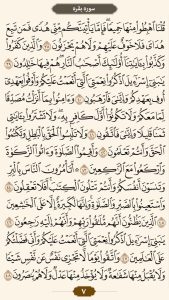 سوره بقره
قُلْنَا ٱهْبِطُوا۟ مِنْهَا جَمِيعًا فَإِمَّا يَأْتِيَنَّكُم مِّنِّى هُدًى فَمَن تَبِعَ
هُدَاىَ فَلَا خَوْفٌ عَلَيْهِمْ وَلَا هُمْ يَحْزَنُونَ ٣٨ وَٱلَّذِينَ كَفَرُوا۟
وَكَذَّبُوا۟ بِـَٔايَـٰتِنَآ أُو۟لَـٰٓئِكَ أَصْحَـٰبُ ٱلنَّارِ هُمْ فِيهَا خَـٰلِدُونَ ٣٩
يَـٰبَنِىٓ إِسْرَٰٓءِيلَ ٱذْكُرُوا۟ نِعْمَتِىَ ٱلَّتِىٓ أَنْعَمْتُ عَلَيْكُمْ وَأَوْفُوا۟ بِعَهْدِىٓ
أُوفِ بِعَهْدِكُمْ وَإِيَّـٰىَ فَٱرْهَبُونِ ٤٠ وَءَامِنُوا۟ بِمَآ أَنزَلْتُ مُصَدِّقًا
لِّمَا مَعَكُمْ وَلَا تَكُونُوٓا۟ أَوَّلَ كَافِرٍۭ بِهِۦ وَلَا تَشْتَرُوا۟ بِـَٔايَـٰتِى
ثَمَنًا قَلِيلًا وَإِيَّـٰىَ فَٱتَّقُونِ ٤١ وَلَا تَلْبِسُوا۟ ٱلْحَقَّ بِٱلْبَـٰطِلِ وَتَكْتُمُوا۟
ٱلْحَقَّ وَأَنتُمْ تَعْلَمُونَ ٤٢ وَأَقِيمُوا۟ ٱلصَّلَوٰةَ وَءَاتُوا۟ ٱلزَّكَوٰةَ
وَٱرْكَعُوا۟ مَعَ ٱلرَّٰكِعِينَ ٤٣ أَتَأْمُرُونَ ٱلنَّاسَ بِٱلْبِرِّ
وَتَنسَوْنَ أَنفُسَكُمْ وَأَنتُمْ تَتْلُونَ ٱلْكِتَـٰبَ أَفَلَا تَعْقِلُونَ ٤٤
وَٱسْتَعِينُوا۟ بِٱلصَّبْرِ وَٱلصَّلَوٰةِ وَإِنَّهَا لَكَبِيرَةٌ إِلَّا عَلَى ٱلْخَـٰشِعِينَ
٤٥ ٱلَّذِينَ يَظُنُّونَ أَنَّهُم مُّلَـٰقُوا۟ رَبِّهِمْ وَأَنَّهُمْ إِلَيْهِ رَٰجِعُونَ ٤٦
يَـٰبَنِىٓ إِسْرَٰٓءِيلَ ٱذْكُرُوا۟ نِعْمَتِىَ ٱلَّتِىٓ أَنْعَمْتُ عَلَيْكُمْ وَأَنِّى فَضَّلْتُكُمْ
عَلَى ٱلْعَـٰلَمِينَ ٤٧ وَٱتَّقُوا۟ يَوْمًا لَّا تَجْزِى نَفْسٌ عَن نَّفْسٍ شَيْـًٔا
وَلَا يُقْبَلُ مِنْهَا شَفَـٰعَةٌ وَلَا يُؤْخَذُ مِنْهَا عَدْلٌ وَلَا هُمْ يُنصَرُونَ ٤٨
٧